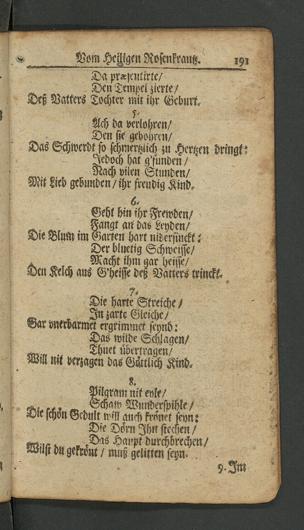 Vom Heiligen Rosenkrantz. 191
Da præsentirte/
Den Tempel zierte/
Deß Vatters Tochter mit ihr Geburt.
5.
Ach da verlohren/
Den sie gebohren/
Das Schwerdt so schmertzlich zu Hertzen dringt:
Jedoch hat g'funden/
Nach vilen Stunden/
Mit Lieb gebunden/ ihr freudig Kind.
6.
Geht hin ihr Frewden/
Fangt an das Leyden/
Die Blum im Garten hart nidersinckt:
Der bluetig Schweisse/
Macht ihm gar heisse/
Den Kelch aus G'heisse deß Vatters trinckt.
7.
Die harte Streiche/
In zarte Gleiche/
Gar vnerbarmet ergrimmet seynd:
Das wilde Schlagen/
Thuet übertragen/
Will nit verzagen das Göttlich Kind.
8.
Pilgram nit eyle/
Schaw Wunderpihle/
Die schön Gedult will auch krönet seyn:
Die Dörn Ihn stechen/
Das Haupt durchbrechen/
Wilst du gekrönt/ muß gelitten seyn.
9. Im